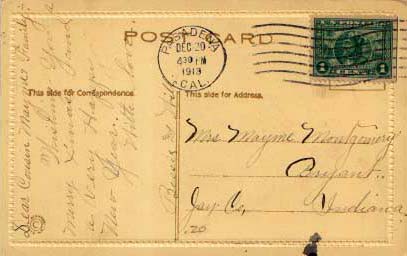 POST CARD
PASADENA
DEC 20
4 30 PM
1913
CAL.
U.S. POSTAGE
1 CENT 1
This side for Correspondence.
This side for Address.
Dear Cousin Mayme & Family:
Wishing you a
Merry Xmas and
a Very Happy
New Year.
With love
Bessie &
Mrs Mayme Montgomery
Bryant
Jay Co, Indiana